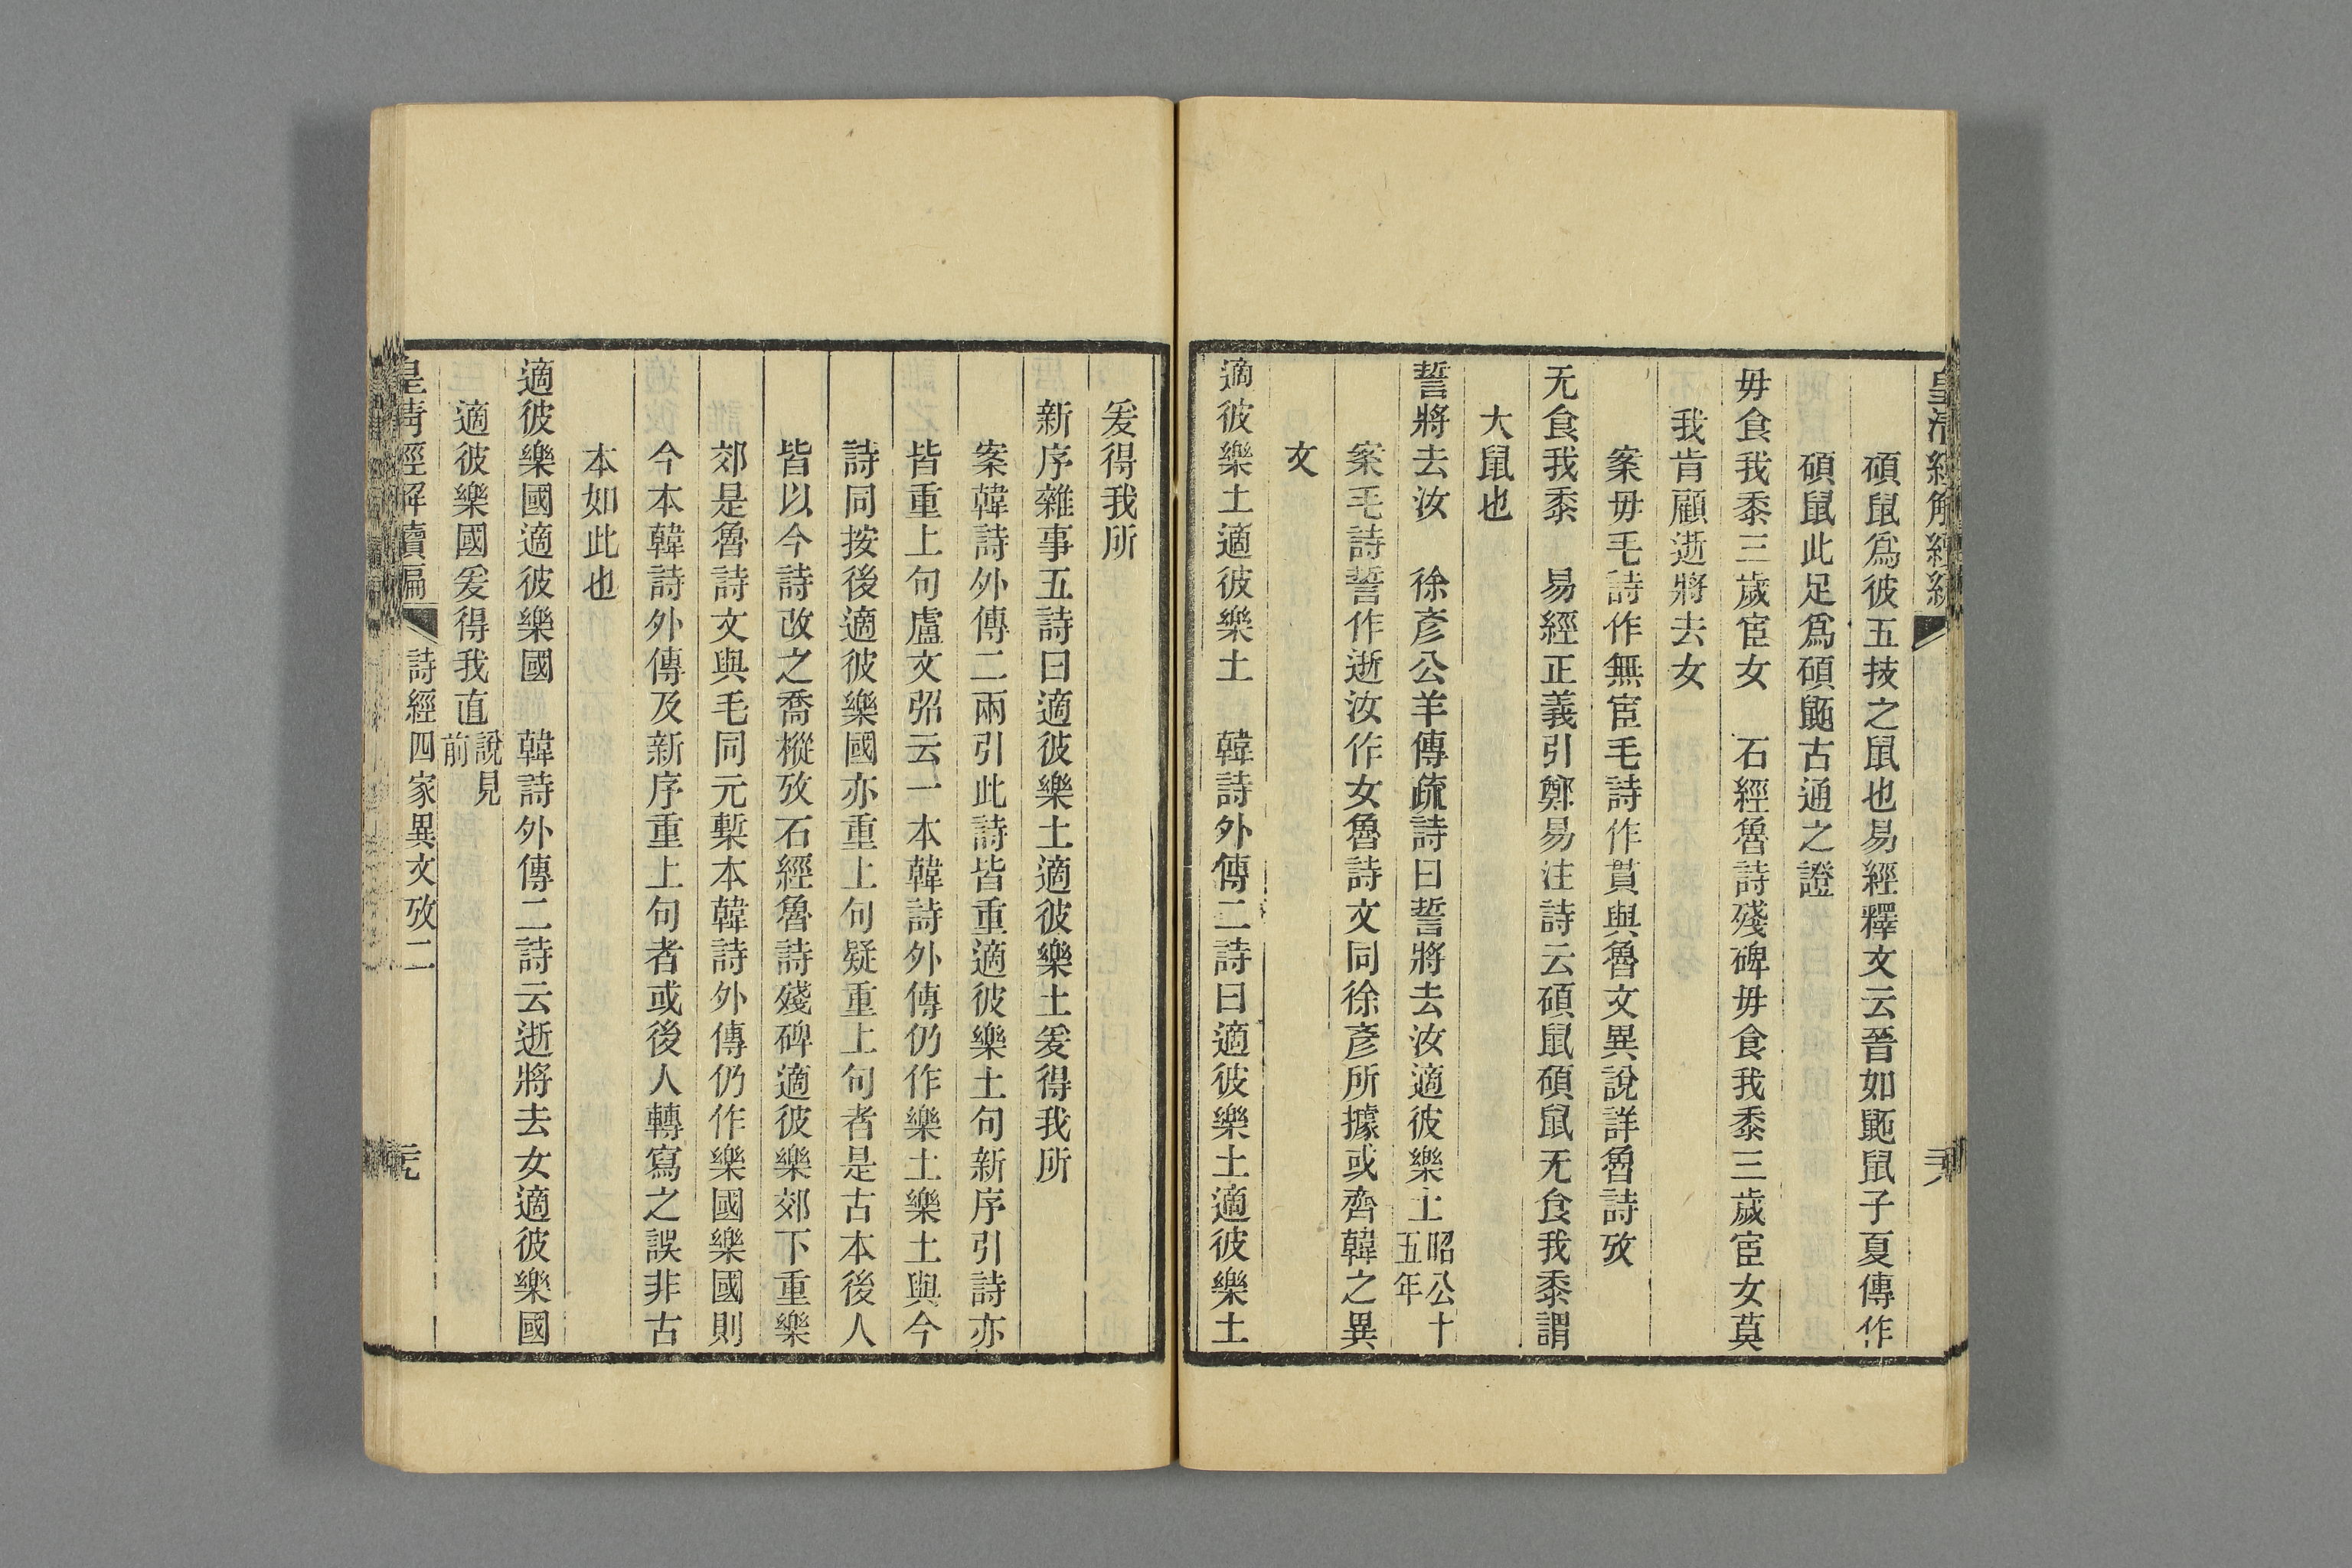 碩鼠爲彼五技之鼠也易經釋文云晉如鼫鼠子夏傳作
碩鼠此足爲碩鼫古通之證
毋食我黍三歲宦女　石經魯詩殘碑毋食我黍三歲宦女莫
我肯顧逝將去女
案毋毛詩作無宦毛詩作貫與魯文異說詳魯詩攷
无食我黍　易經正義引鄭易注詩云碩鼠碩鼠无食我黍謂
大鼠也
誓將去汝　徐彥公羊傳疏詩曰誓將去汝適彼樂土昭公十五年
案毛詩誓作逝汝作女魯詩文同徐彥所據或齊韓之異
文
適彼樂土適彼樂土　韓詩外傳二詩曰適彼樂土適彼樂土
爰得我所
新序雜事五詩曰適彼樂土適彼樂土爰得我所
案韓詩外傳二兩引此詩皆重適彼樂土句新序引詩亦
皆重上句盧文弨云一本韓詩外傳仍作樂土樂土與今
詩同按後適彼樂國亦重上句疑重上句者是古本後人
皆以今詩改之喬樅攷石經魯詩殘碑適彼樂郊下重樂
郊是魯詩文與毛同元槧本韓詩外傳仍作樂國樂國則
今本韓詩外傳及新序重上句者或後人轉寫之誤非古
本如此也
適彼樂國適彼樂國　韓詩外傳二詩云逝將去女適彼樂國
適彼樂國爰得我直說見前
皇清經解續編　詩經四家異文攷二